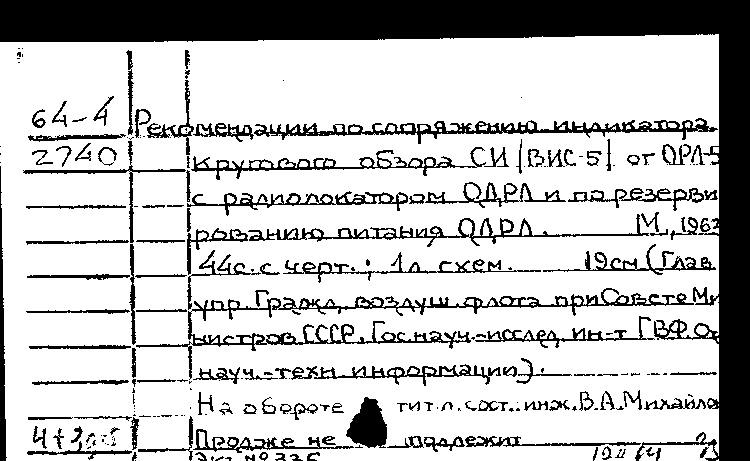 64-4 Рекомендации по сопряжению индикатора
2740 кругового обзора СИ |ВИС-5| от ОРЛ-5
с радиолокатором ОДРЛ и по резерви
рованию питания ОДРЛ. М., 1963
44с. с черт.; 1л схем. 19см (Глав
упр. Гражд. воздуш. флота при Совете Ми
нистров СССР. Гос. науч.-исслед. ин-т ГВФ. От
науч.-техн. информации).
На обороте тит. л. сост.: инж. В.А. Михайло
Продаже не подлежит